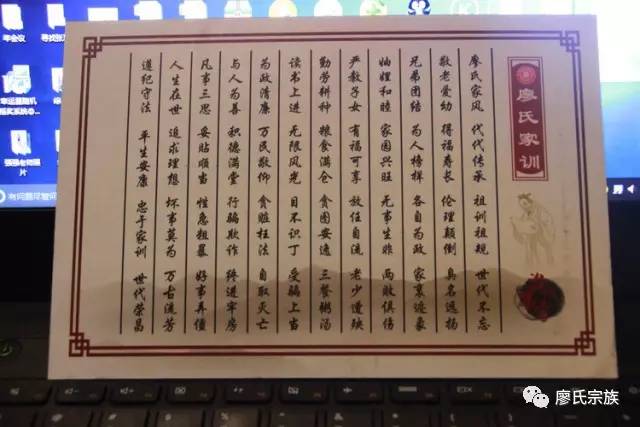 廖氏家训
廖氏家风 代代传承 祖训祖规 世代不忘
敬老爱幼 得福寿长 伦理颠倒 臭名远扬
兄弟团结 为人榜样 各自为政 家衰迹象
妯娌和睦 家园兴旺 无事生非 两败俱伤
严教子女 有福可享 放任自流 老少遭殃
勤劳耕种 粮食满仓 贪图安逸 三餐粥汤
读书上进 无限风光 目不识丁 受骗上当
为政清廉 万民敬仰 贪赃枉法 自取灭亡
与人为善 积德满堂 行骗欺诈 终进牢房
凡事三思 妥贴顺当 性急粗暴 好事弄僵
人生在世 追求理想 坏事莫为 万古流芳
遵纪守法 平生安康 忠于家训 世代荣昌
年会议
片
廖氏宗族